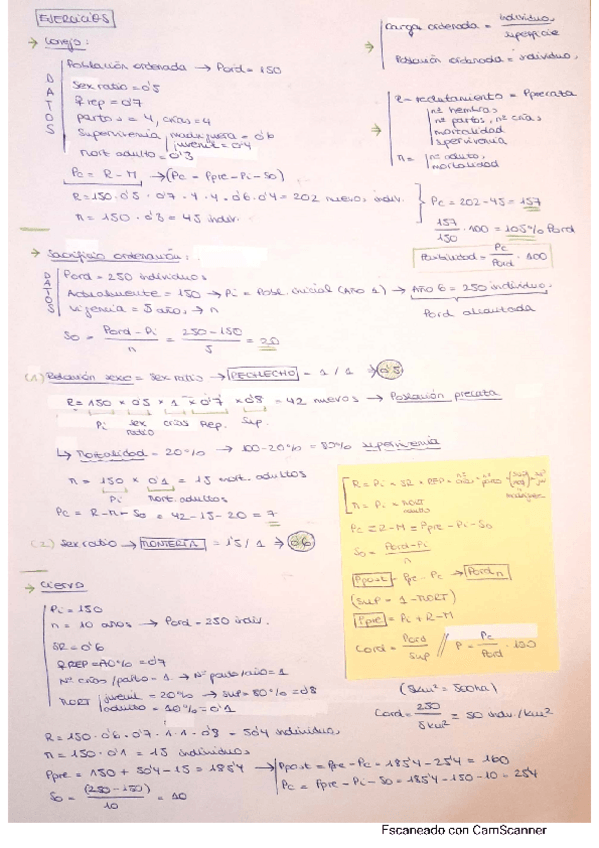 EJERCICIOS
→ Conejo:
DATOS
Población ordenada → Pord = 150
Sex ratio = 0'5
R rep = 0'7
partos = 4, crías = 4
Supervivencia madriguera = 0'6
juvenil = 0'4
Mort adulto = 0'3
Pc = R - M → (Pc = Ppre - Pi - So)
R = 150 · 0'5 · 0'7 · 4 · 4 · 0'6 · 0'4 = 202 nuevos indiv.
n = 150 · 0'3 = 45 indiv.
Carga ordenada = individuos / superficie
Población ordenada = individuos.
R - reclutamiento = Pprecata
nº hembras
nº partos, nº crías
mortalidad
supervivencia
n = nº adultos
mortalidad
Pc = 202 - 45 = 157
157 / 150 · 100 = 105% Pord
Posibilidad = Pc / Pord · 100
→ Sacrificio ordenación:
DATOS
Pord = 250 individuos
Actualmente = 150 → Pi = Pobl. inicial (AÑO 1) → AÑO 6 = 250 individuos.
Vigencia = 5 años → n
Pord alcanzada
So = Pord - Pi / n = 250 - 150 / 5 = 20
(1) Relación sexo = Sex ratio → RECHECHO = 1 / 1 → 0'5
R = 150 × 0'5 × 1 × 0'7 × 0'8 = 42 nuevos → Población precata
Pi sex ratio crías Rep. Sup.
↳ Mortalidad = 20% → 100 - 20% = 80% supervivencia
n = 150 × 0'1 = 15 mort. adultos
Pi mort. adultos
Pc = R - n - So = 42 - 15 - 20 = 7
(2) Sex ratio → MONTERÍA = 1'5 / 1 → 0'6
n = Pi = MORT adulto
Pc = R - M = Ppre - Pi - So
So = Pord - Pi / n
Ppost = Ppre - Pc → Pord n
(Sup = 1 - MORT)
Ppre = Pi + R - M
Cord = Pord / Sup // P = Pc / Pord · 100
→ Ciervo
Pi = 150
n = 10 años → Pord = 250 indiv.
SR = 0'6
R REP = 70% = 0'7
Nº crías /parto = 1 → Nº parto/año = 1
MORT juvenil = 20% → sup = 80% = 0'8
adultos = 10% = 0'1
R = 150 · 0'6 · 0'7 · 1 · 1 · 0'8 = 50'4 individuos,
n = 150 · 0'1 = 15 individuos
Ppre = 150 + 50'4 - 15 = 185'4 → Ppost = Ppre - Pc = 185'4 - 25'4 = 160
So = (250 - 150) / 10 = 10
Pc = Ppre - Pi - So = 185'4 - 150 - 10 = 25'4
(5km² = 500ha)
Cord = 250 / 5km² = 50 indiv./km²
Escaneado con CamScanner